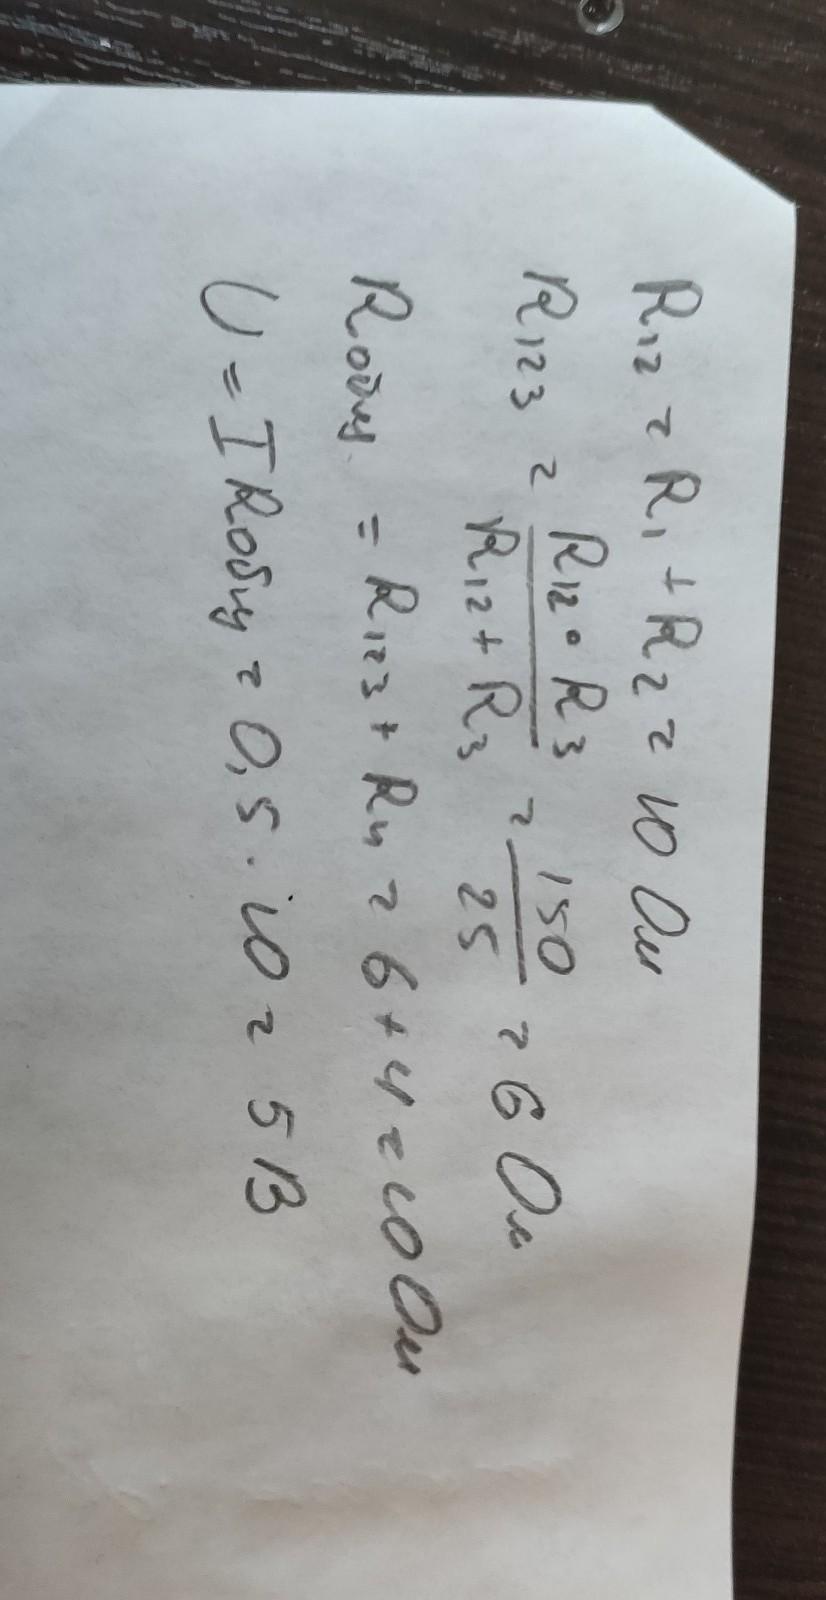 R₁₂ = R₁ + R₂ = 10 Ом
R₁₂₃ = (R₁₂ · R₃)/(R₁₂ + R₃) = 150/25 = 6 Ом
Rобщ = R₁₂₃ + R₄ = 6 + 4 = 10 Ом
U = I Rобщ = 0,5 · 10 = 5 В